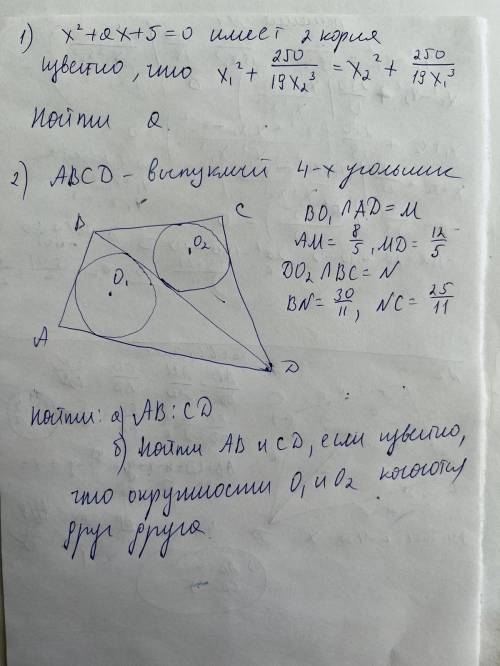 1) x²+ax+5=0 имеет 2 корня
известно, что x₁² + 250/19x₂³ = x₂² + 250/19x₁³
Найти a.
2) ABCD – выпуклый 4-х угольник
B
C
O₂
O₁
A
D
BO₁ ∩ AD = M
AM = 8/5, MD = 12/5
DO₂ ∩ BC = N
BN = 30/11, NC = 25/11
Найти: а) AB : CD
б) Найти AB и CD, если известно,
что окружности O₁ и O₂ касаются
друг друга.